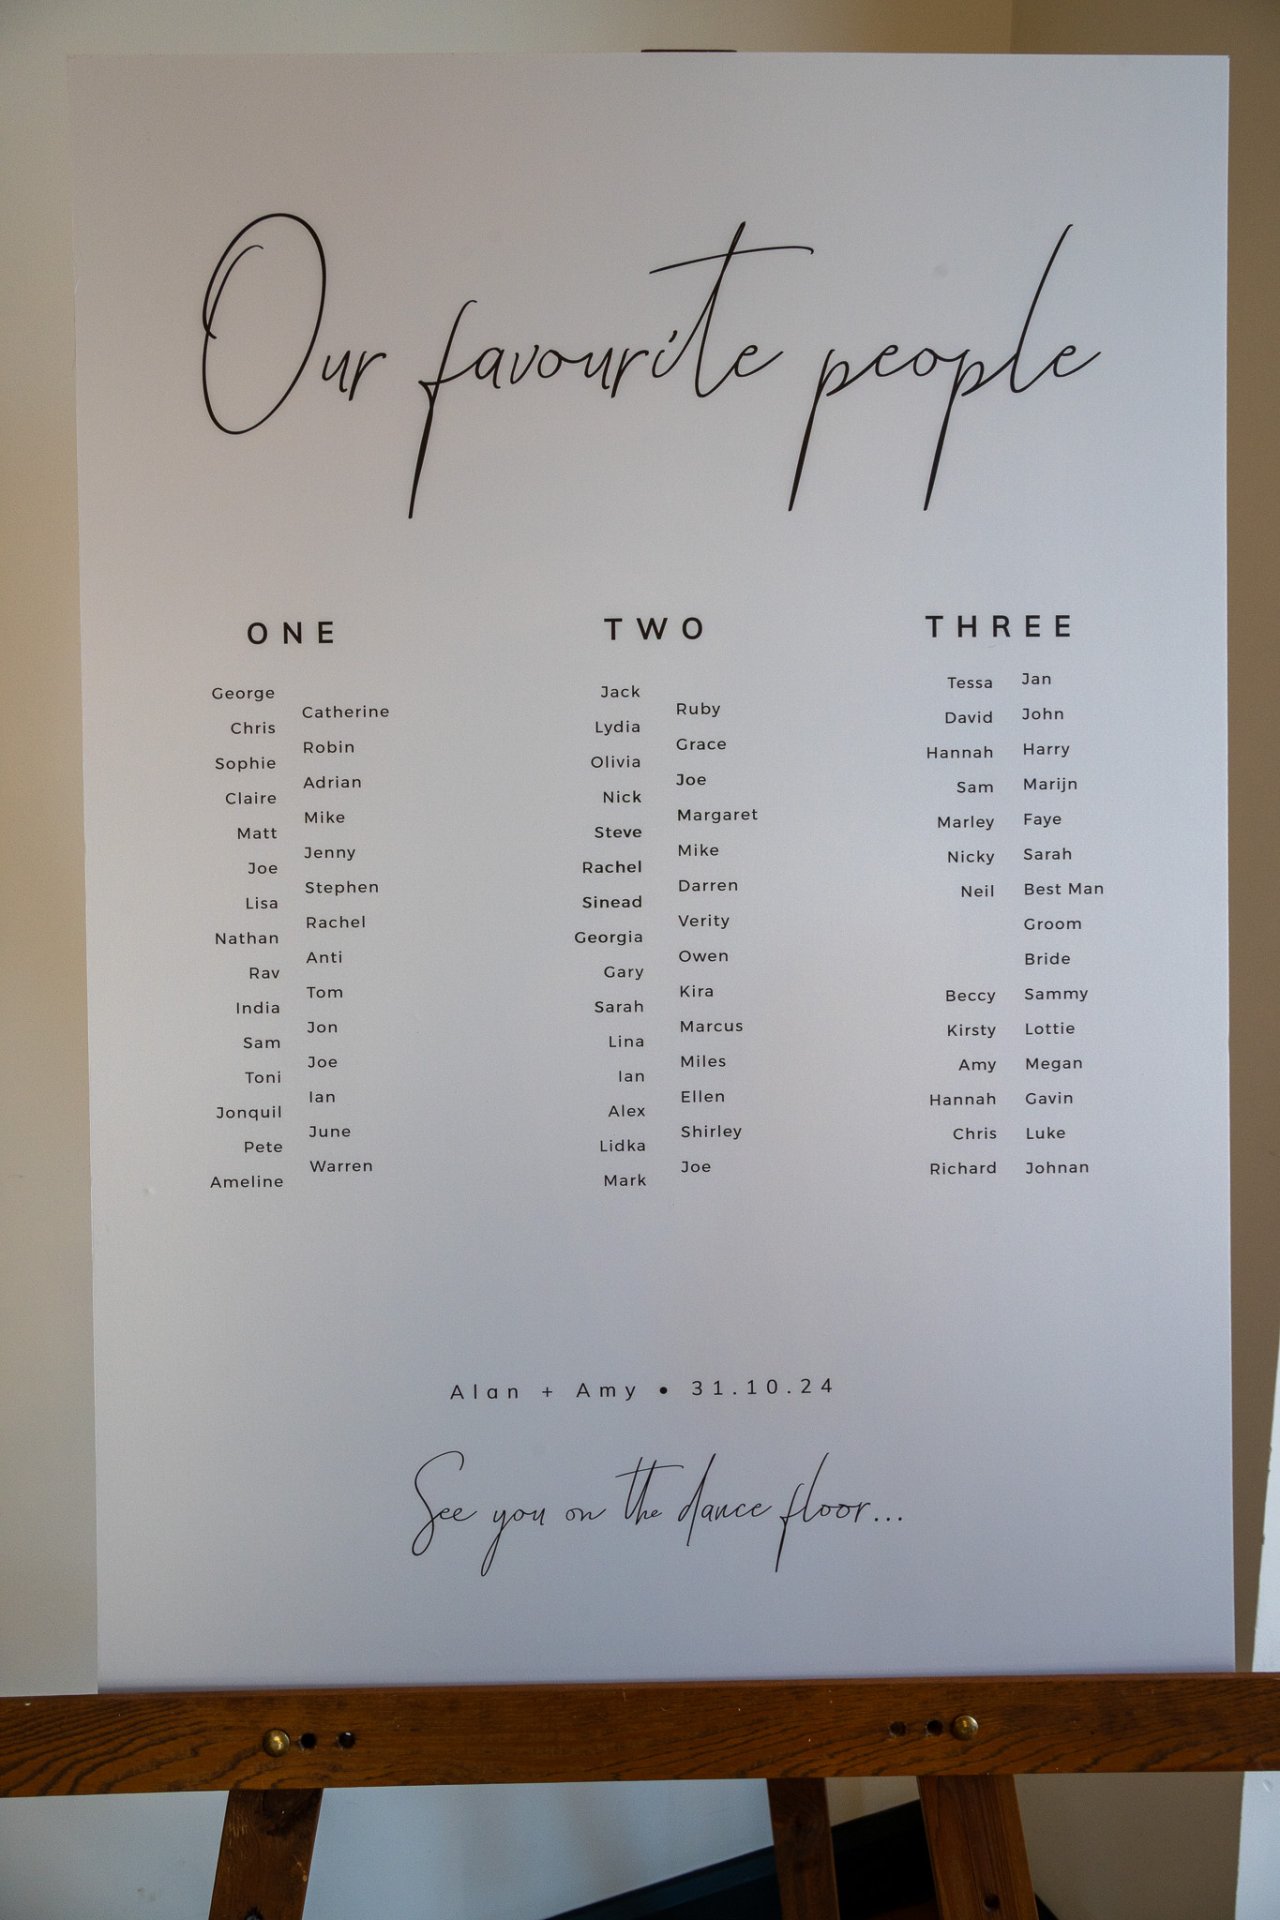 Our favourite people
ONE
George
Catherine
Chris
Robin
Sophie
Adrian
Claire
Mike
Matt
Jenny
Joe
Stephen
Lisa
Rachel
Nathan
Anti
Rav
Tom
India
Jon
Sam
Joe
Toni
Ian
Jonquil
June
Pete
Warren
Ameline
TWO
Jack
Ruby
Lydia
Grace
Olivia
Joe
Nick
Margaret
Steve
Mike
Rachel
Darren
Sinead
Verity
Georgia
Owen
Gary
Kira
Sarah
Marcus
Lina
Miles
Ian
Ellen
Alex
Shirley
Lidka
Joe
Mark
THREE
Tessa Jan
David John
Hannah Harry
Sam Marijn
Marley Faye
Nicky Sarah
Neil Best Man
Groom
Bride
Beccy Sammy
Kirsty Lottie
Amy Megan
Hannah Gavin
Chris Luke
Richard Johnan
Alan + Amy • 31.10.24
See you on the dance floor...